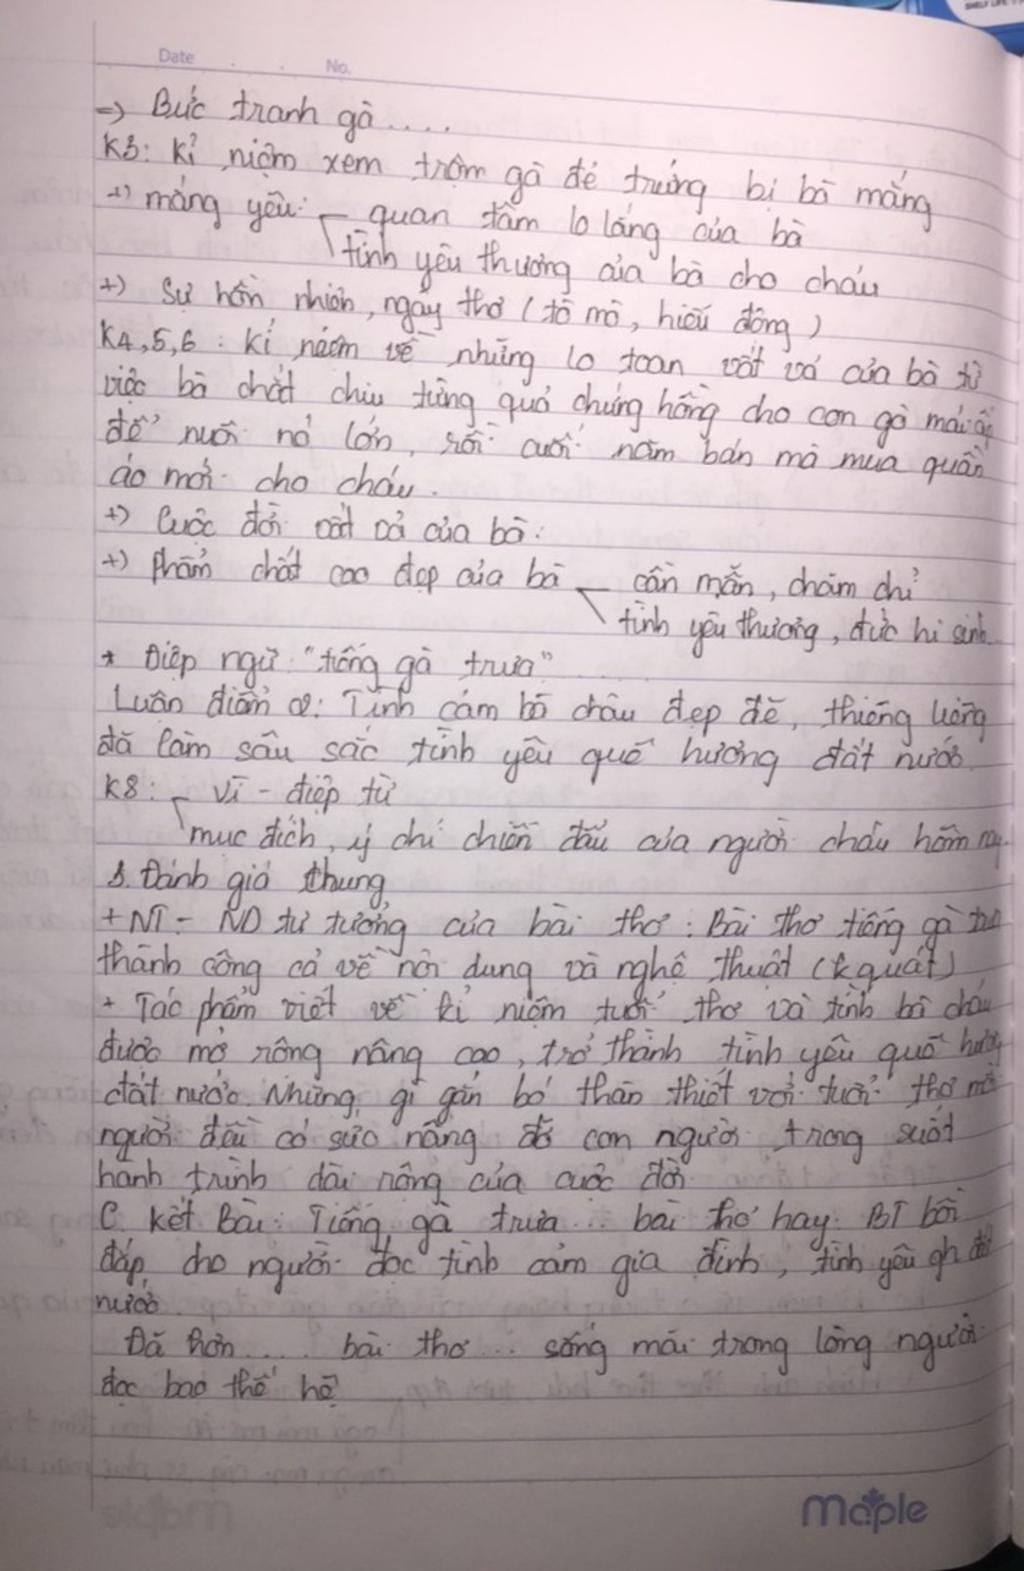 SHELF LIFE
Date No.
=> Bức tranh gà ....
K3: Kỉ niệm xem trộm gà đẻ trứng bị bà mắng
+) mắng yêu: quan tâm lo lắng của bà
tình yêu thương của bà cho cháu
+) Sự hồn nhiên, ngây thơ (tò mò, hiếu động)
K4,5,6: kỉ niệm về những lo toan vất vả của bà từ
việc bà chắt chiu từng quả chứng hồng cho con gà mái ấp
để nuôi nó lớn, rồi cuối năm bán mà mua quần
áo mới cho cháu.
+) Cuộc đời vất vả của bà.
+) Phẩm chất cao đẹp của bà cần mẫn, chăm chỉ
tình yêu thương, đức hi sinh
* Điệp ngữ "tiếng gà trưa" ....
Luận điểm 2: Tình cảm bà cháu đẹp đẽ, thiêng liêng
đã làm sâu sắc tình yêu quê hương đất nước
K8: Vì - điệp từ
mục đích, ý chí chiến đấu của người cháu hôm nay.
3. Đánh giá chung
+ NT - ND tư tưởng của bài thơ: Bài thơ tiếng gà trưa
thành công cả về nội dung và nghệ thuật (k.quát)
+ Tác phẩm viết về kỉ niệm tuổi thơ và tình bà cháu
được mở rộng nâng cao, trở thành tình yêu quê hương
đất nước. Những gì gắn bó thân thiết với tuổi thơ mỗi
người đều có sức nâng đỡ con người trong suốt
hành trình dài rộng của cuộc đời
C. Kết Bài: Tiếng gà trưa ... bài thơ hay. BT bồi
đắp cho người đọc tình cảm gia đình, tình yêu qh đất
nước.
Đã hơn .... bài thơ ... sống mãi trong lòng người
đọc bao thế hệ
Maple